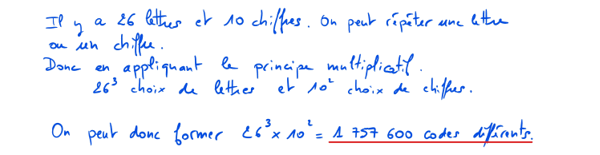 Il y a 26 lettres et 10 chiffres. On peut répéter une lettre
ou un chiffre.
Donc en appliquant le principe multiplicatif.
26³ choix de lettres et 10² choix de chiffres.
On peut donc former 26³ × 10² = 1 757 600 codes différents.